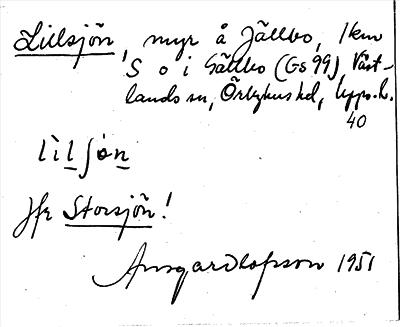 Lillsjön, myr å Jällbo, 1 km
S o i Sällbo (Gs 99), Väst-
lands sn, Örbyhus hd, Upps. l.
40
lìlsjön
Jfr Storsjön!
Ansgar Olofsson 1951